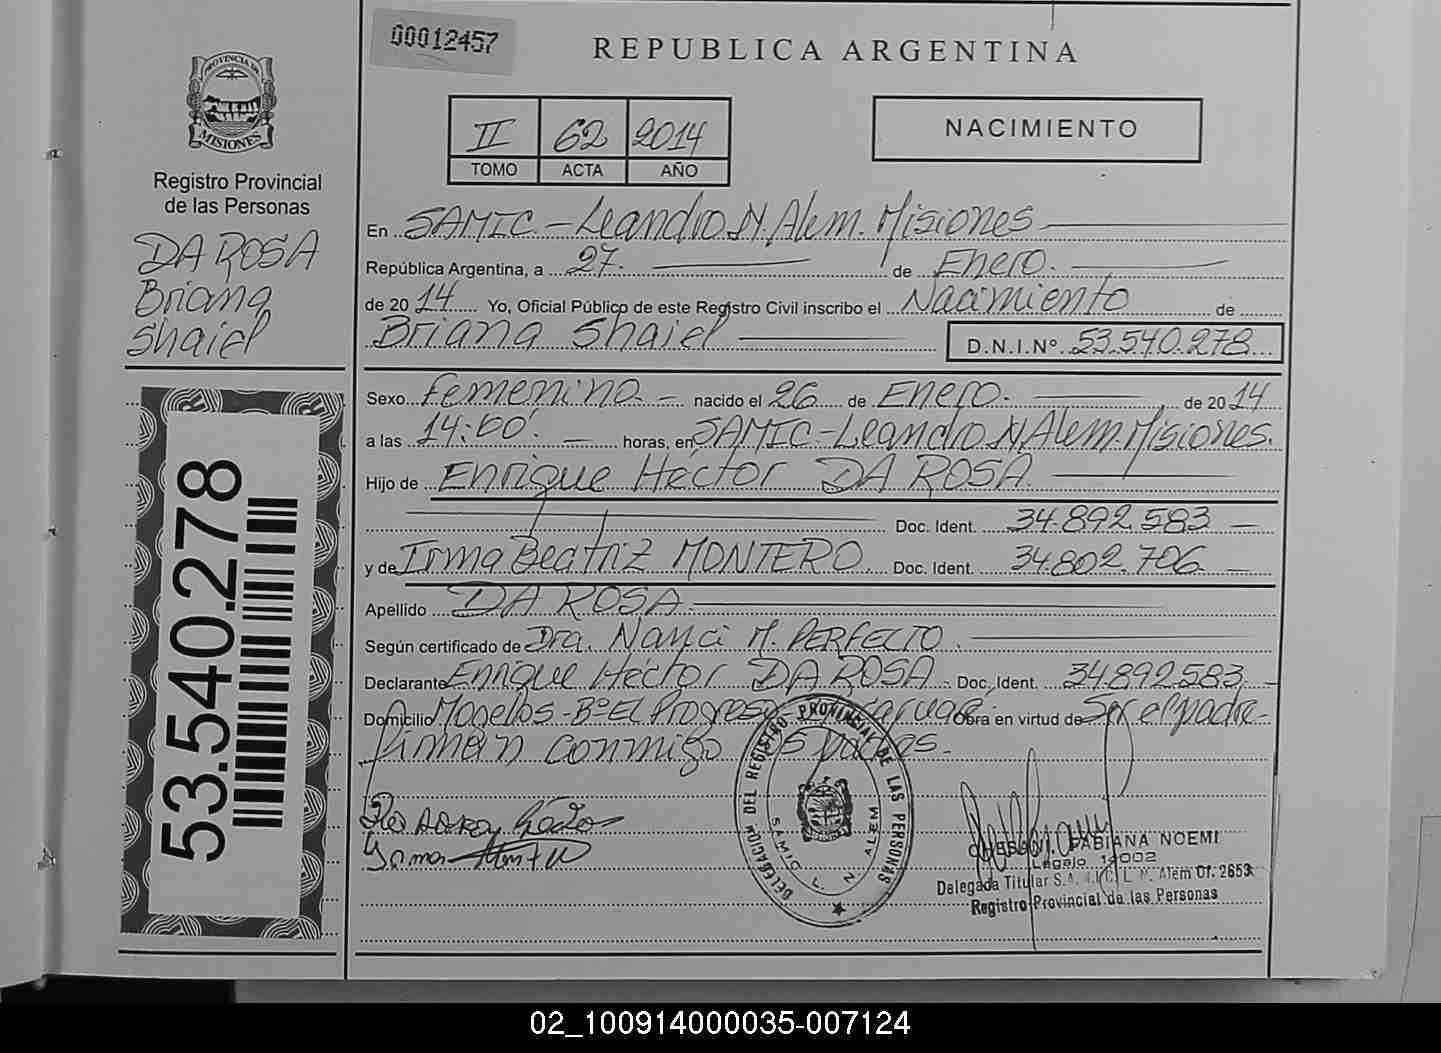 00012457
REPUBLICA ARGENTINA
PROVINCIA DE
MISIONES
Registro Provincial
de las Personas
DA ROSA
Briana
Shaiel
II 62 2014
TOMO ACTA AÑO
NACIMIENTO
En SAMIC - Leandro N. Alem. Misiones
República Argentina, a 27. de Enero.
de 2014 Yo, Oficial Público de este Registro Civil inscribo el Nacimiento de
Briana Shaiel D.N.I.Nº 53.540.278
Sexo Femenino - nacido el 26 de Enero. de 2014
a las 14:00'. horas, en SAMIC - Leandro N Alem. Misiones.
Hijo de Enrique Héctor DA ROSA
Doc. Ident. 34.892.583
y de Irma Beatriz MONTERO. Doc. Ident. 34.802.706
Apellido DA ROSA
Según certificado de Dra. Nanci M. PERFECTO.
Declarante Enrique Héctor DA ROSA - Doc. Ident. 34.892.583
Domicilio Mogelos - Bº El Progreso Obra en virtud de Ser el padre -
firman conmigo padres.
53.540.278
DELEGACION DEL REGISTRO PROVINCIAL DE LAS PERSONAS
SAMIC L. N. ALEM
FABIANA NOEMI
Legajo 14002
Delegada Titular S.A.M.I.C. L. N. Alem Of. 2653
Registro Provincial de las Personas
02_100914000035-007124